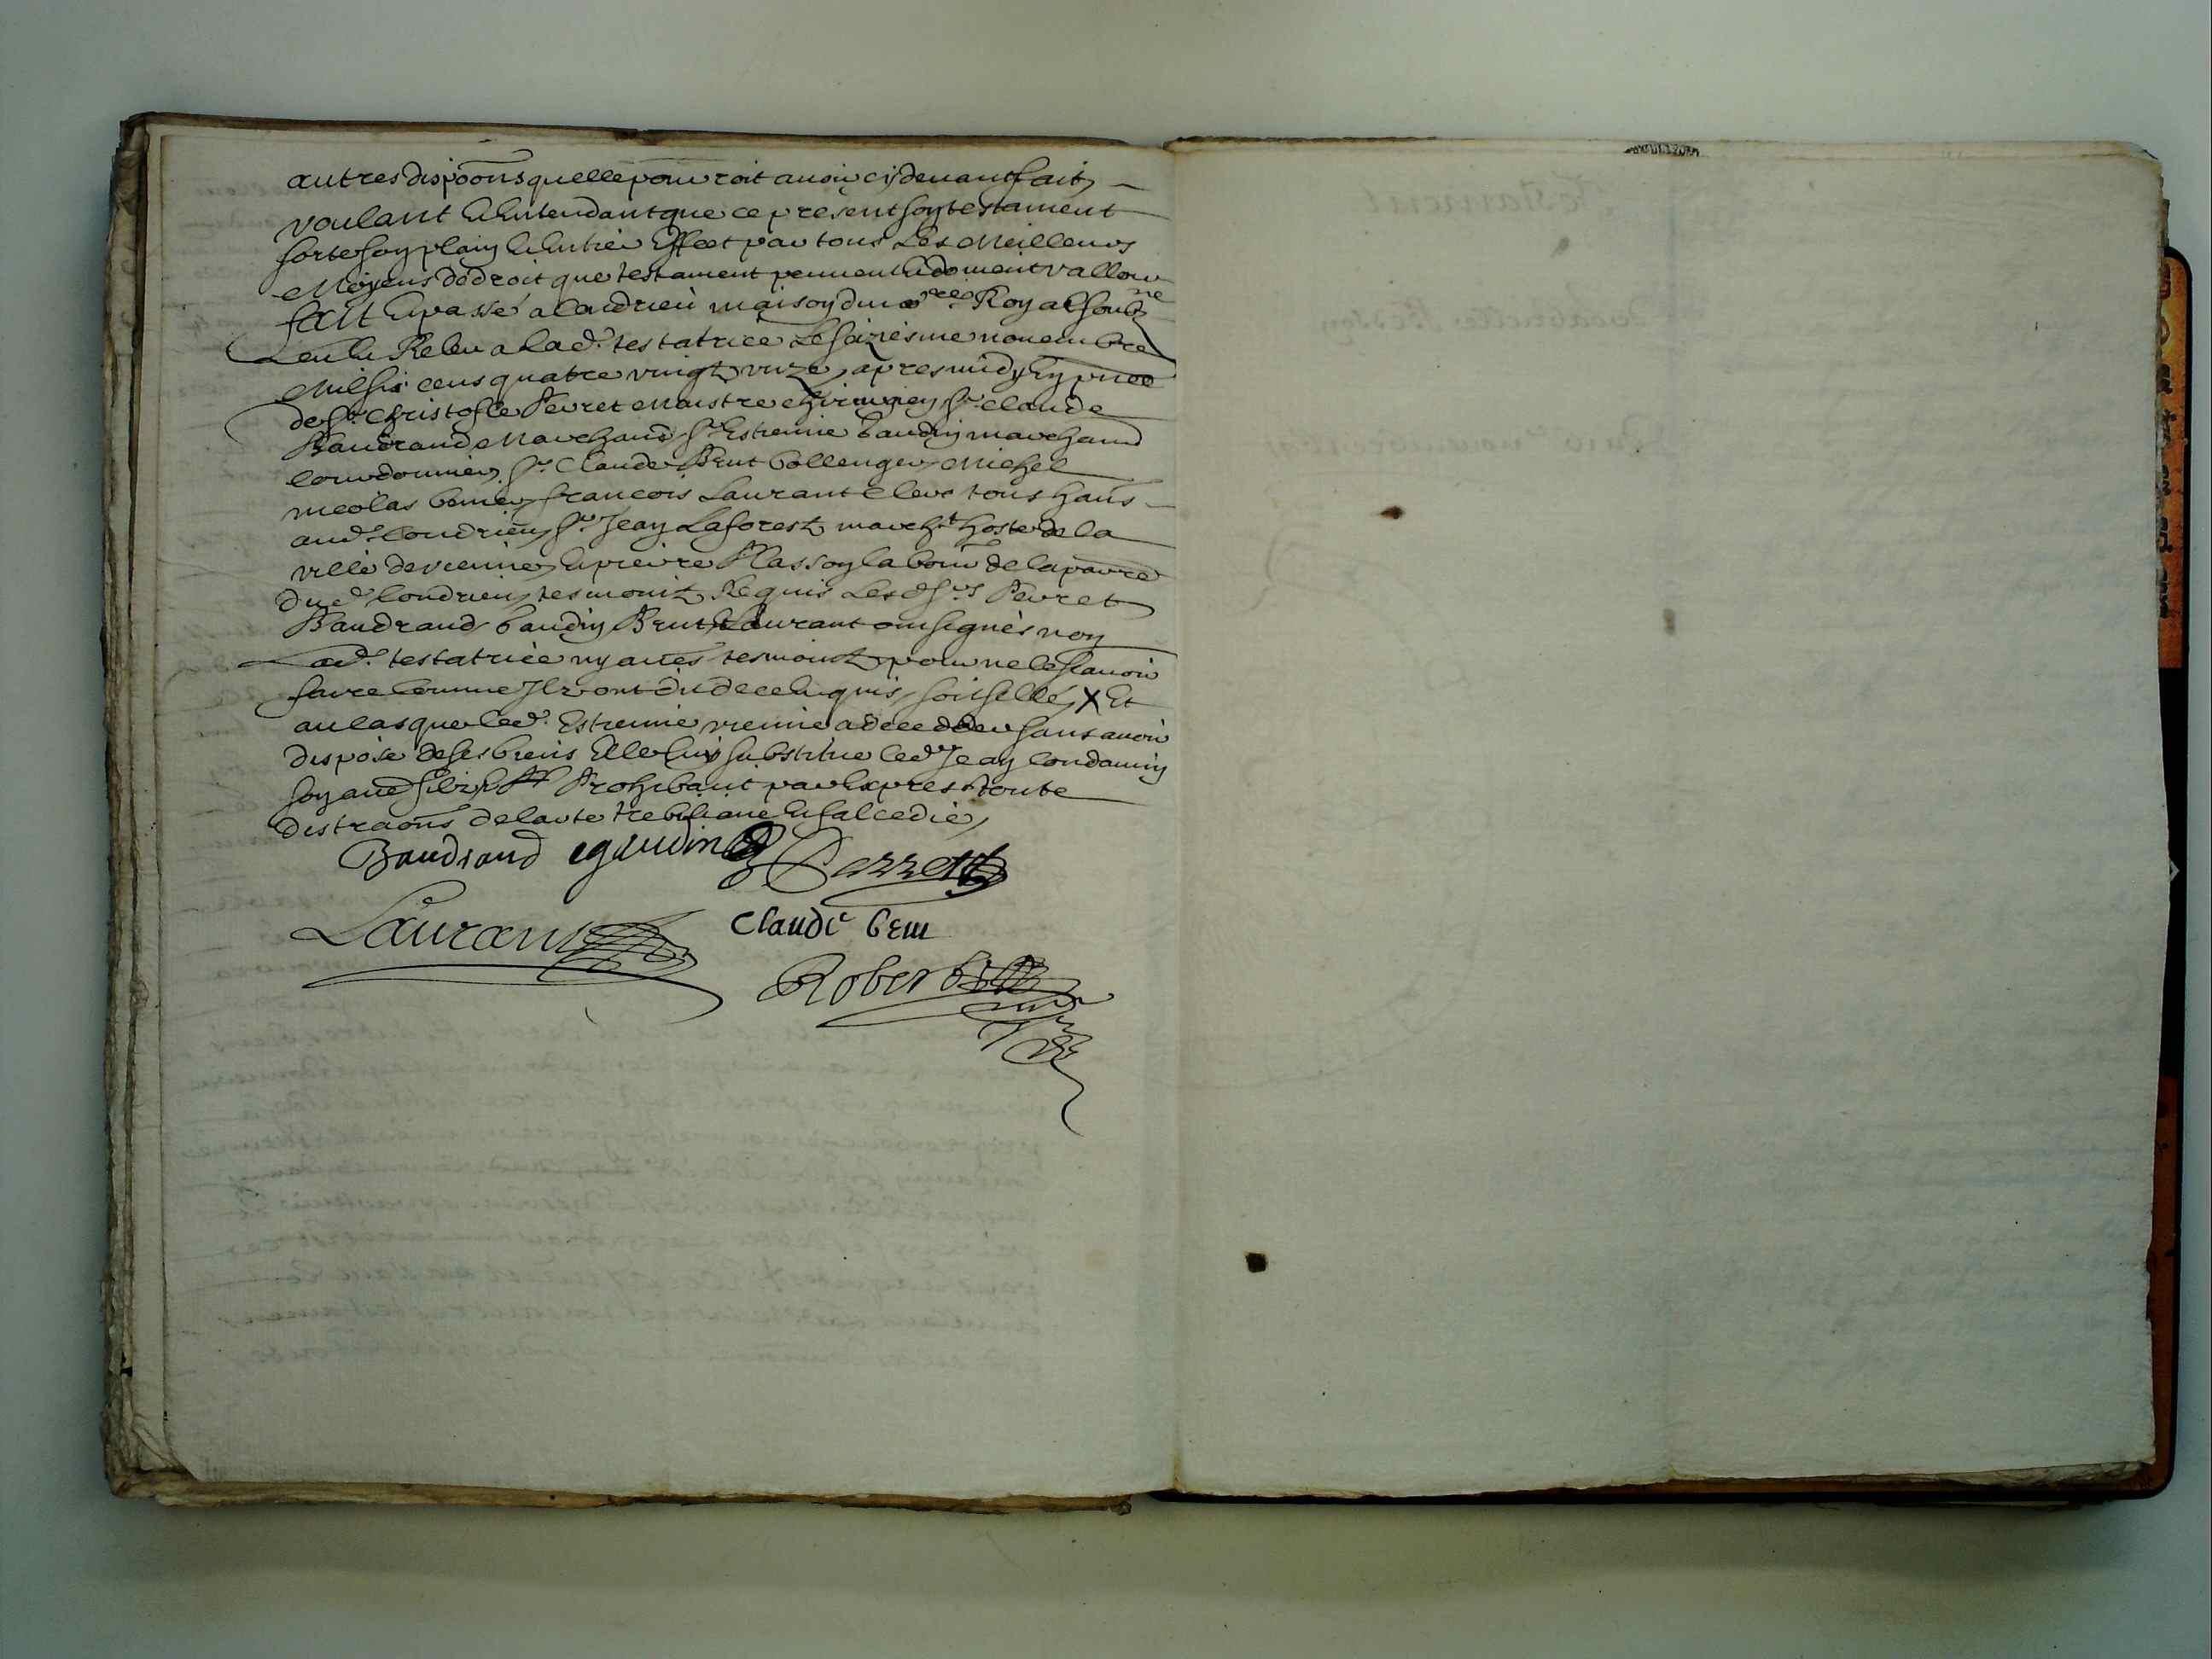 autres dispoons quelle pouvroit auoir cy deuant fait,
voulant & Entendant que ce present son testament
sorte son plain & Entier Effect par tous Les Meilleurs
Moyens de droit que testament peuuent & doiuent valloir
fait & passé a Condrieu maison du nore Royal soubzne
Leu & Releu a lad. testatrice Le seizesme nouembre
Mil six cens quatre vingtz unze, apres midy En pnce
de sr. Christofle Perret Maistre chirurgien, sr. Claude
Baudrand Marchand, sr. Estienne baudin marchand
courdonnier, sr. Claude Brut bollenger, Michel
nicolas, françois Laurant clerc tous hans
aud. Condrieu, sr. Jean Laforest marcht. hoste de la
ville de vienne, & pierre Plasson labour de la pavre
dud. Condrieu, tesmoins Requis Lesd. srs Perret
Baudrand baudin Brut & Laurant ont signés non
lad. testatrice ny aues tesmoins pour ne le scauoir
faire comme Ilz ont dit de ce Enquis, soit sellé, X Et
au cas que led. Estienne vienne a decedder sans auoir
dispose de ses biens Elle luy substitue led. Jean Condamin
son aue filz, Prohibant par Exprest toute
distraons de carte trebelliane & falcedie,
Baudrand egaudin Perret
Laurant Claude brut
Robert